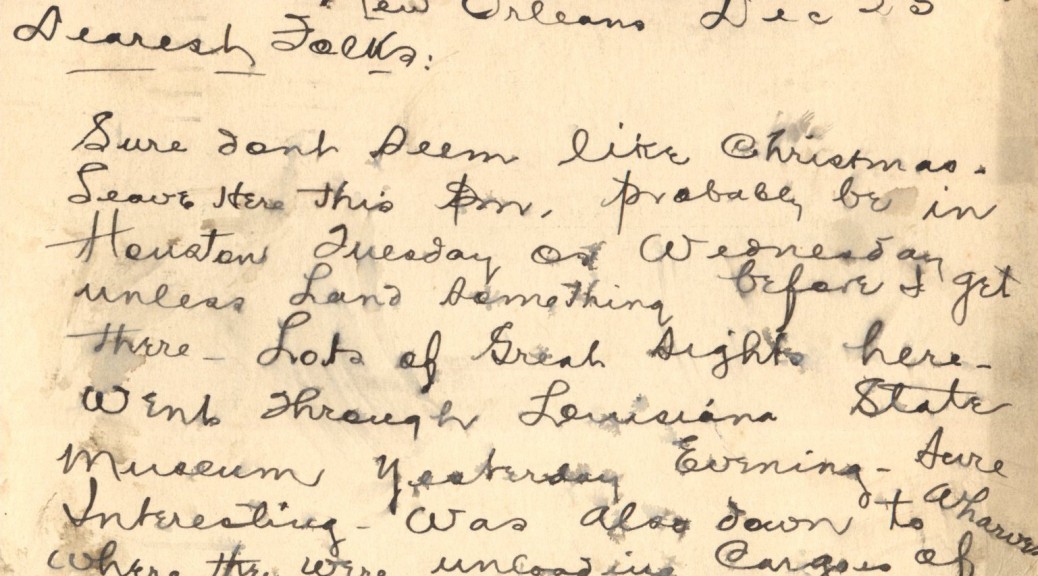 New Orleans Dec 25
Dearest Folks:
Sure dont seem like Christmas.
Leave Here this Pm, probably be in
Houston Tuesday or Wednesday
unless Land something before I get
there - Lots of Great sights here -
Went through Louisiana State
Museum Yesterday Evening - Sure
Interesting - Was also down to Wharves
where the were unloading Cargoes of